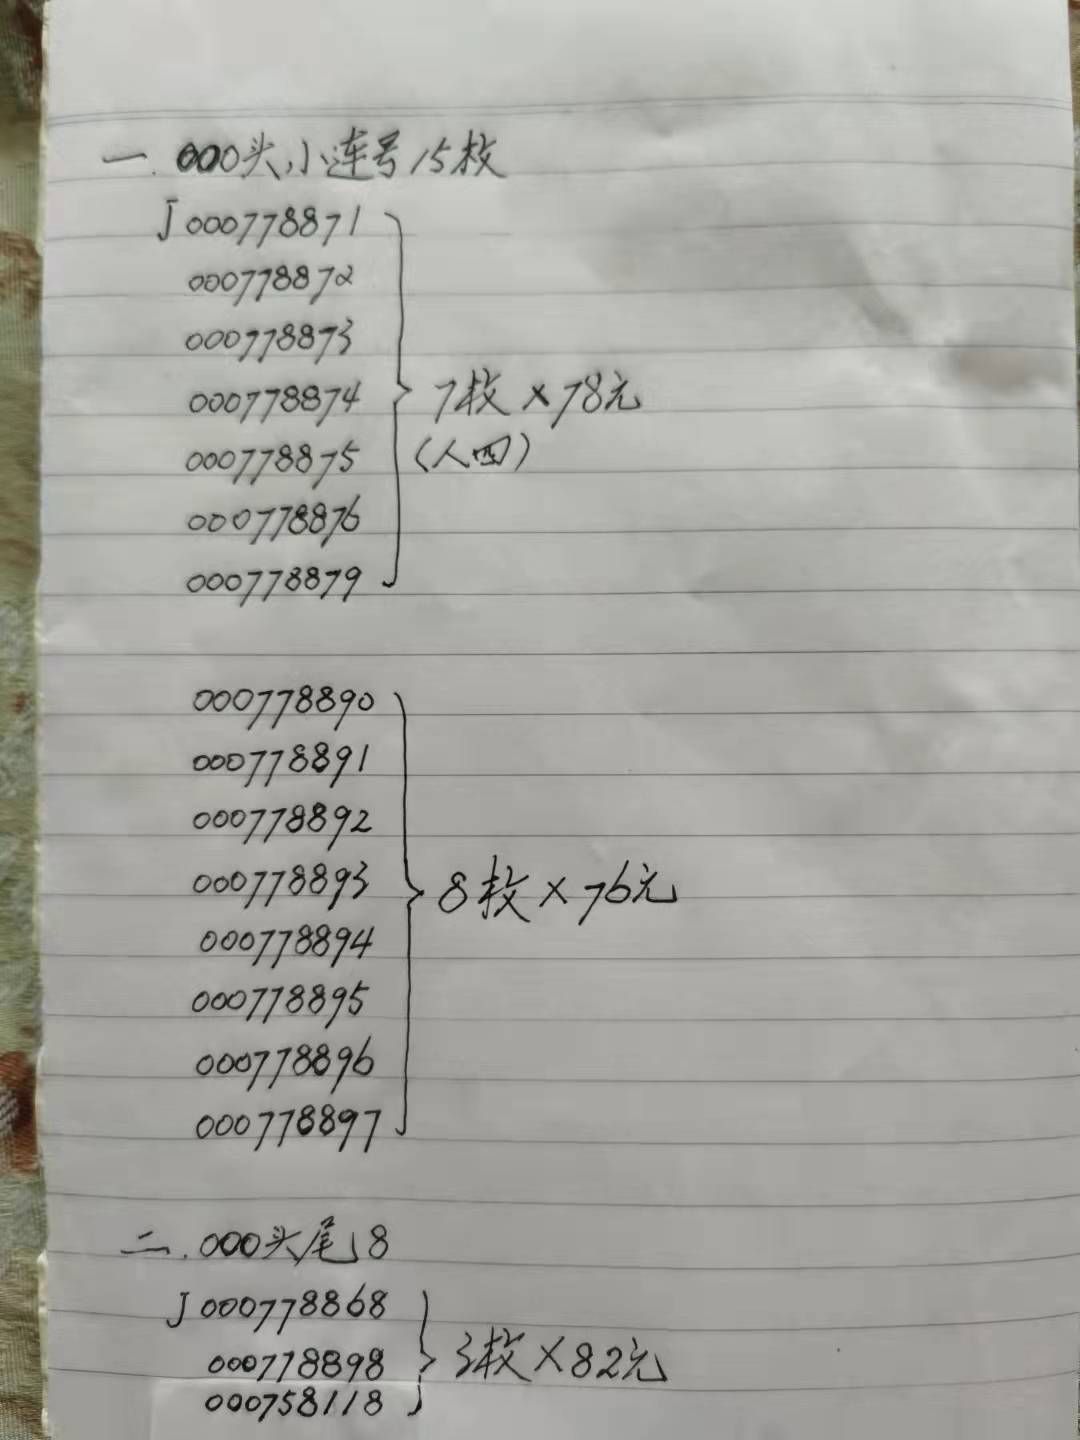 一.000头小连号15枚
J000778871
000778872
000778873
000778874
7枚×78元
000778875
(人四)
000778876
000778879
000778890
000778891
000778892
000778893
8枚×76元
000778894
000778895
000778896
000778897
二.000头尾8
J000778868
000778898
3枚×82元
000758118